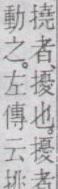 撓者、擾也。擾者
動之。左傳云挑